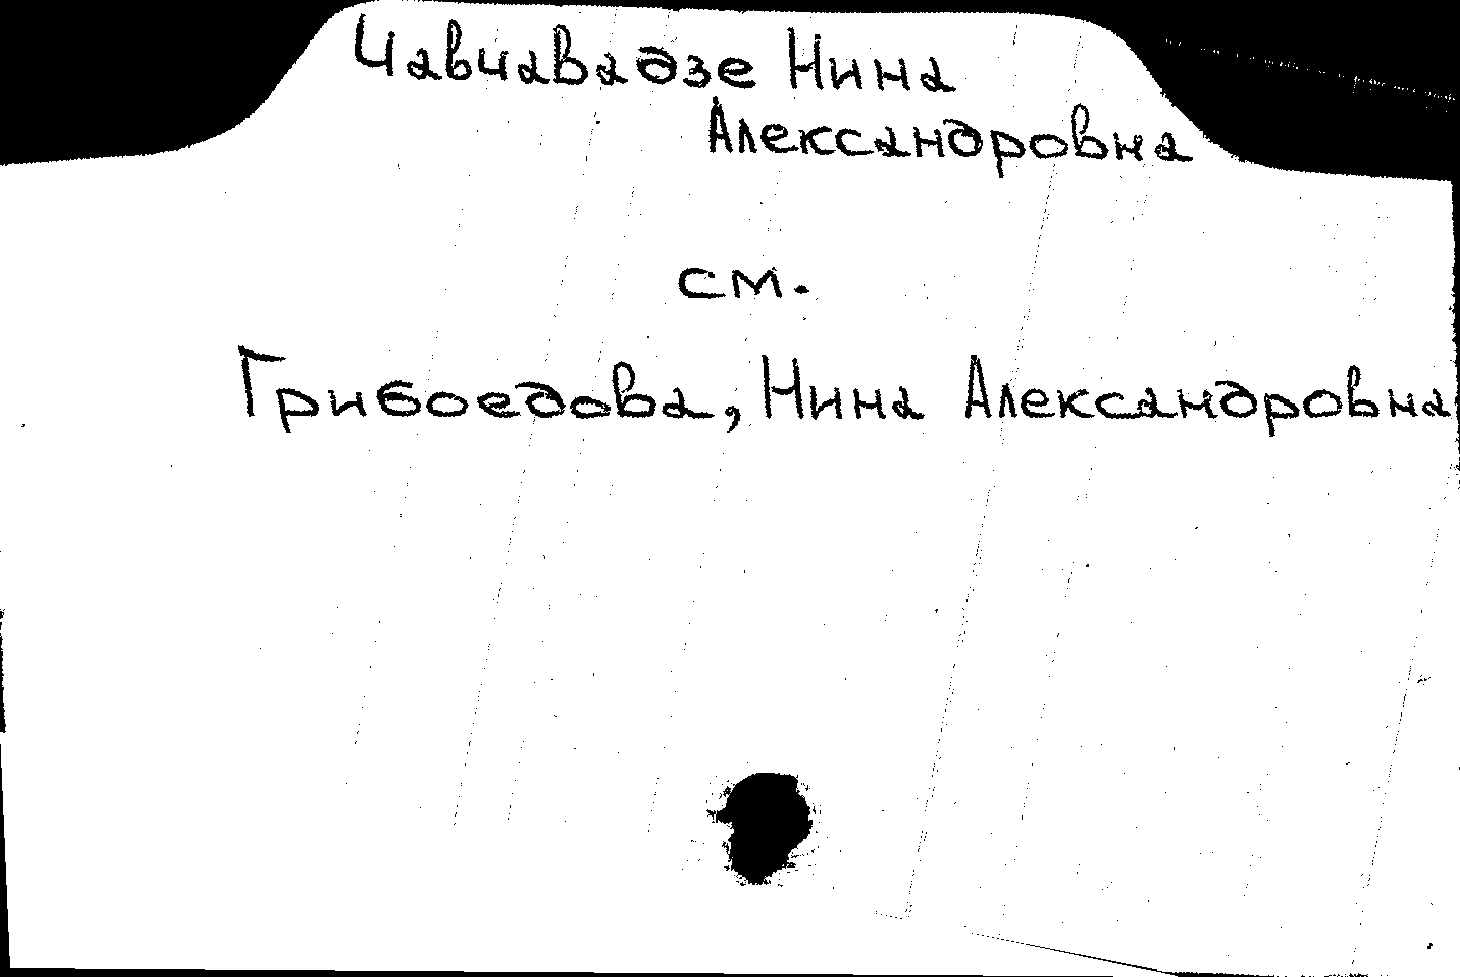 Чавчавадзе Нина
Александровна
см.
Грибоедова, Нина Александровна